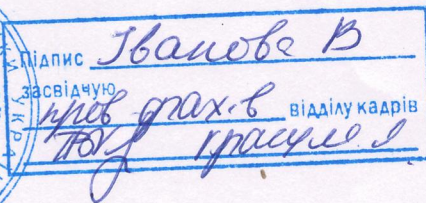 Підпис Іванова В
засвідчую
пров фахів відділу кадрів